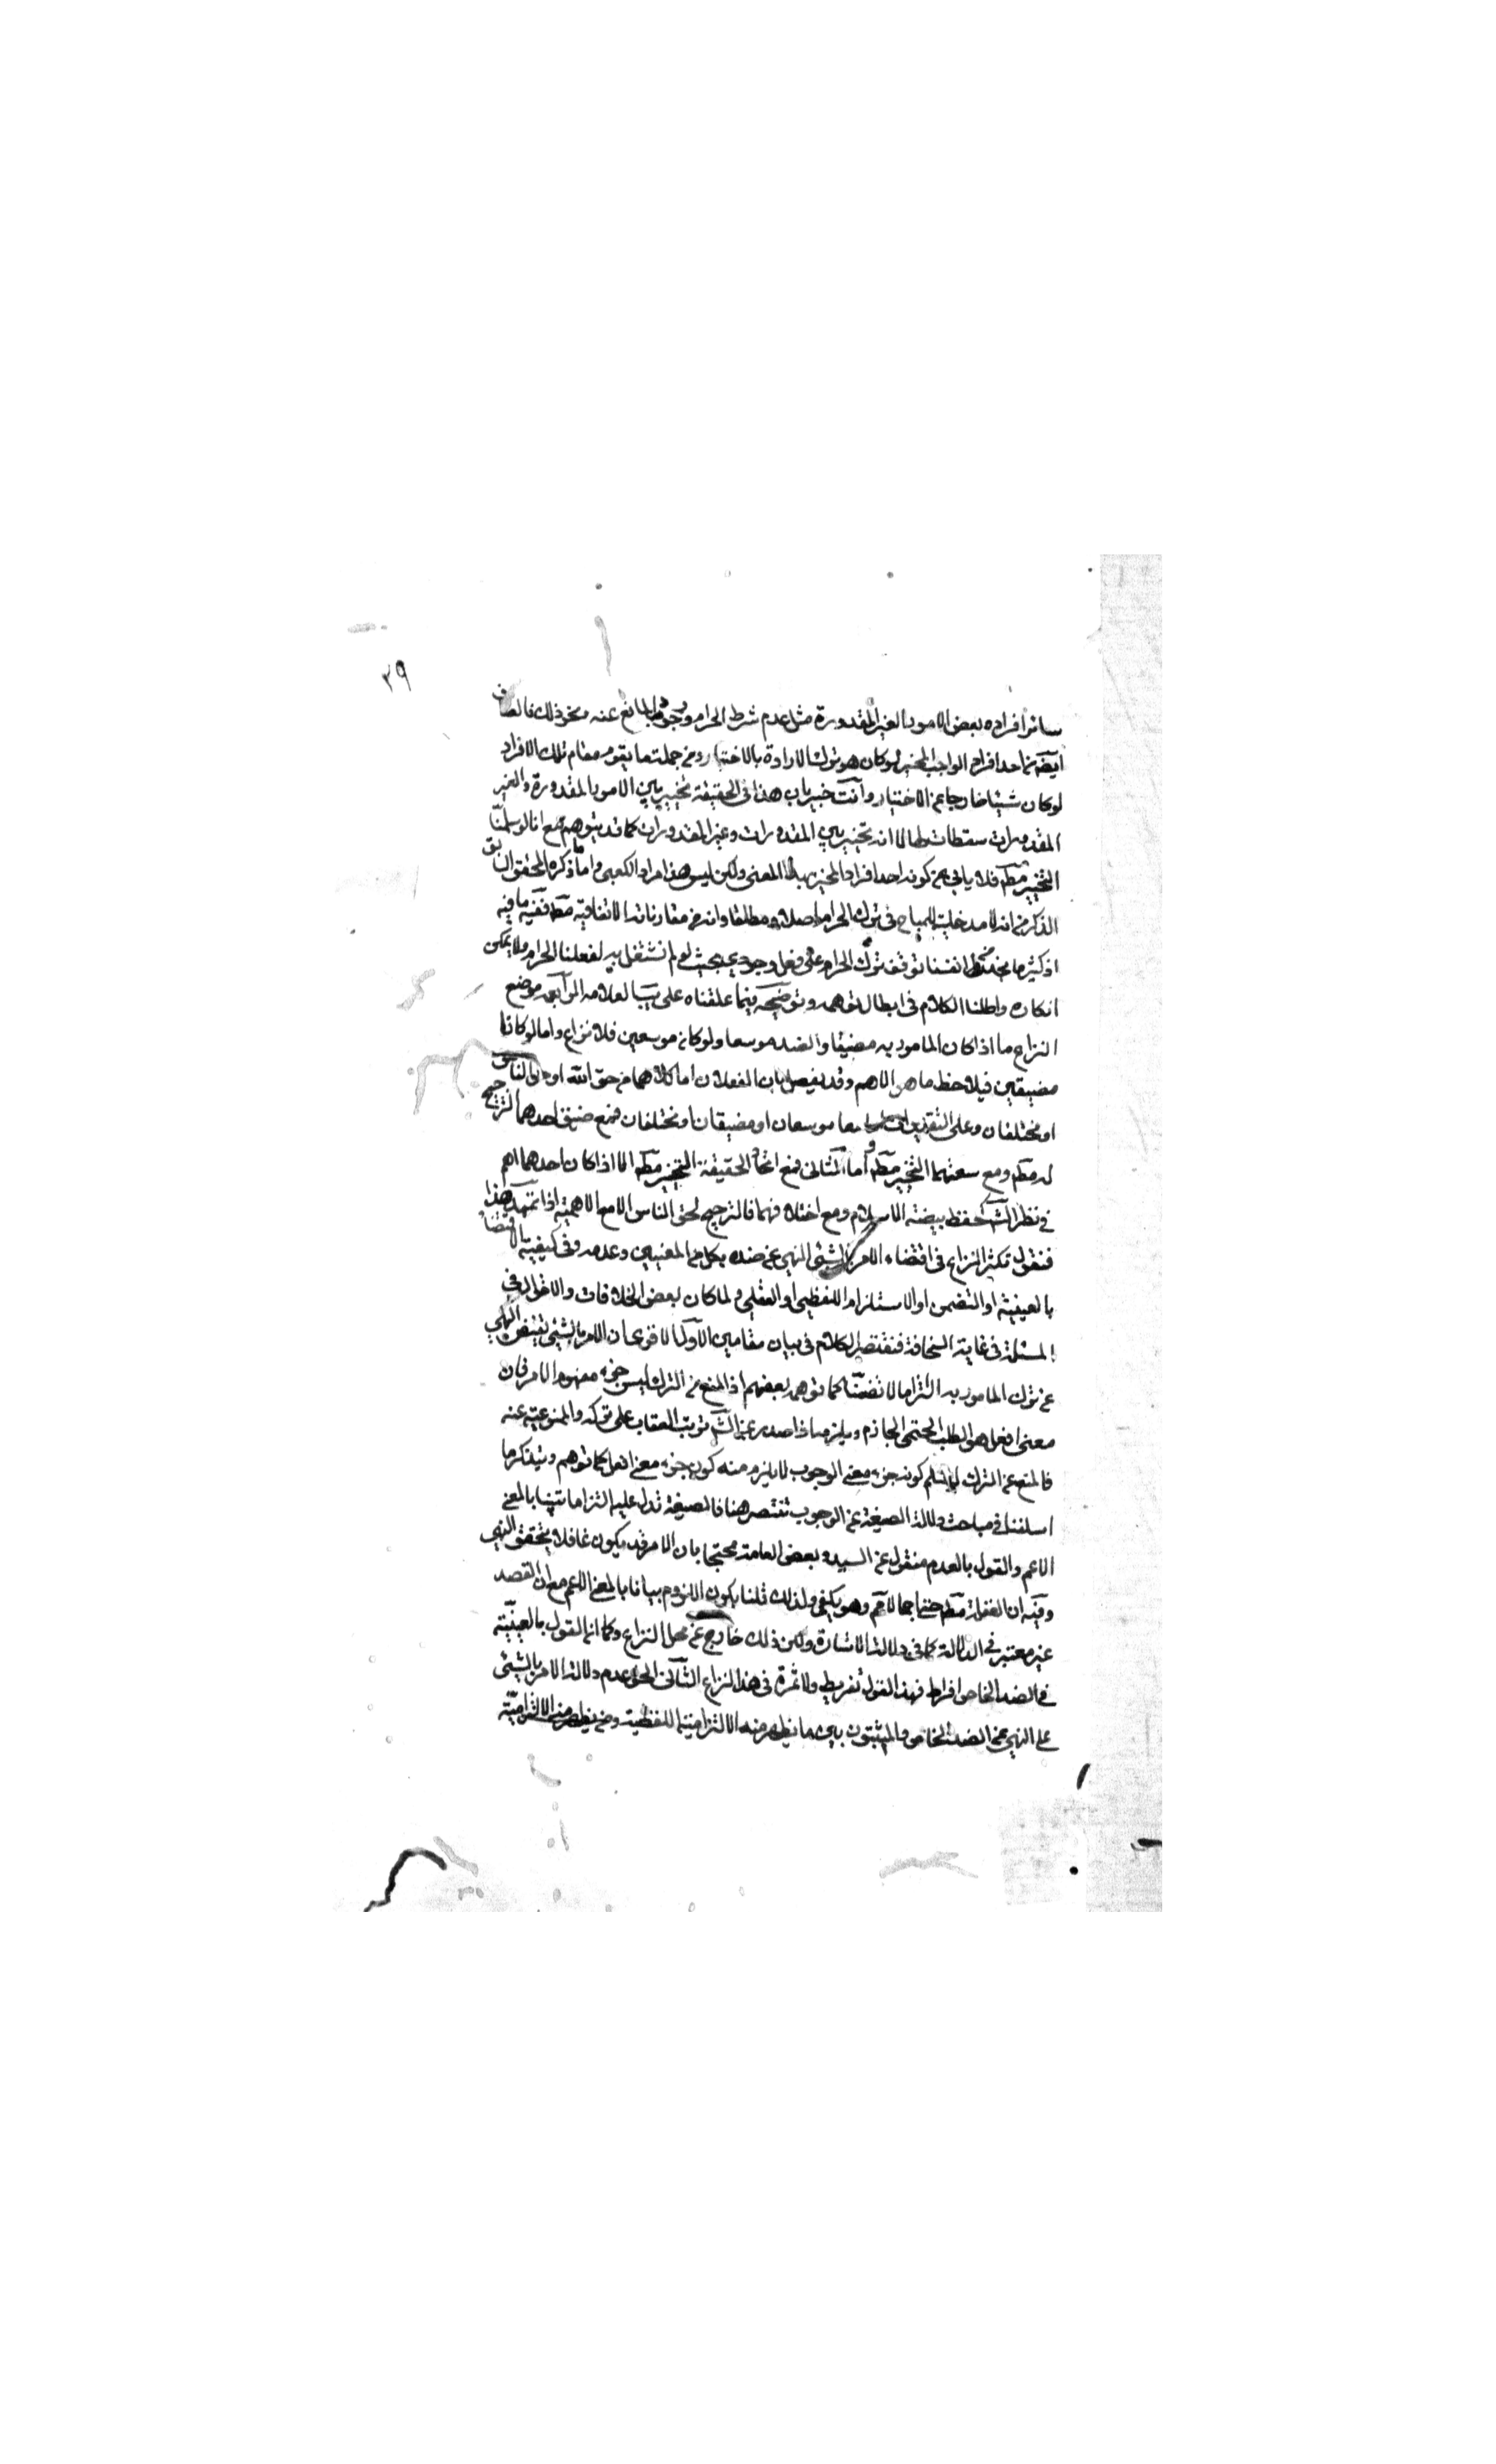 ٣٩
سائر افراده بعض الامور الغير المقدورة مثل عدم شرط الحرام ووجود المانع عنه ونحو ذلك فالصارف
ايضه من احد افراد الواجب المخير لو كان هو ترك الارادة بالاختيار ومن جملته ما يقوم مقام تلك الافراد
لو كان شيئا خارجا عن الاختيار وانت خبير بان هذا في الحقيقة تخيير بين الامور المقدورة والغير
المقدورات سقطات لها لا انه تخيير بين المقدورات وغير المقدورات كما قد يتوهم مع انا لو سلمنا
التخيير مطه فلا يابى عن كونه احد افراد المخير بهذا المعنى ولكن ليس هذا مراد الكعبي واما ما ذكره المحقق السابق
الذكر من انه لا مدخلية للمباح في ترك الحرام اصلا ومطلقا وانه من مقارناته الاتفاقية مطه ففيه ما فيه
اذ كثيرا ما نجد من انفسنا توقف ترك الحرام على فعل وجودي بحيث لو لم نشتغل به لفعلنا الحرام ولا يمكن
انكاره واطلنا الكلام في ابطال توهمه وتوضيحه فيما علقناه على الرابعه موضع
النزاع ما اذا كان المامور به مضيقا والضد موسعا ولو كانا موسعين فلا نزاع واما لو كانا
مضيقين فيلاحظ ما هو الاهم وقد يفصل بان الفعلان اما كلاهما من حق الله او حق الناس
او مختلفان وعلى التقديرات اما معا موسعان او مضيقان او مختلفان فمع ضيق احدهما الترجيح
له مطه ومع سعتهما التخيير مطه واما الثاني فمع اتحاد الحقيقة التخيير مطه الا اذا كان احدهما اهم
في نظر الشه كحفظ بيضة الاسلام ومع اختلافهما فالترجيح لحق الناس الا مع الاهمية اذا تمهد هذا
فنقول تكثر النزاع في اقتضاء الامر بالشئ النهي عن ضده بكل من المعنيين وعدمه وفي كيفية الاقتضاء
بالعينية او التضمن او الاستلزام اللفظي او العقلي ولما كان بعض الخلافات والاقوال في
المسئلة في غاية السخافة فنقتصر الكلام في بيان مقامين الاول الاقوى ان الامر بالشئ يقتضي النهي
عن ترك المامور به التزاما لا تضمنا كما توهمه بعضهم اذ المنع من الترك ليس جزء مفهوم الامر فان
معنى افعل هو الطلب الحتمي الجازم ويلزمه اذا صدر عن الشه ترتب العقاب على تركه والممنوعية عنه
فالمنع عن الترك لو سلم كونه جزء معنى الوجوب لا يلزم منه كونه جزء معنى افعل كما توهم وتتذكر ما
اسلفنا في مباحث دلالة الصيغة عن الوجوب تقتصر هنا فالصيغة تدل عليه التزاما بينا بالمعنى
الاعم والقول بالعدم منقول عن السيد وبعض العامة محتجا بان الامر قد يكون غافلا فلا يتحقق النهي
وفيه ان الغفلة مطه حتى اجمالا مم وهو يكفي ولذلك قلنا بكون اللزوم بيانا بالمعنى الاعم مع ان القصد
غير معتبر في الدلالة كما في دلالة الاشارة ولكن ذلك خارج عن محل النزاع وكما ان القول بالعينية
في الضد الخاص افراط فهذا القول تفريط ولا ثمرة في هذا النزاع الثاني الحق عدم دلالة الامر بالشئ
على النهي عن الضد الخاص والمثبتون بين ما يظهر منه الالتزامية اللفظية ومن يظهر منه الالتزامية